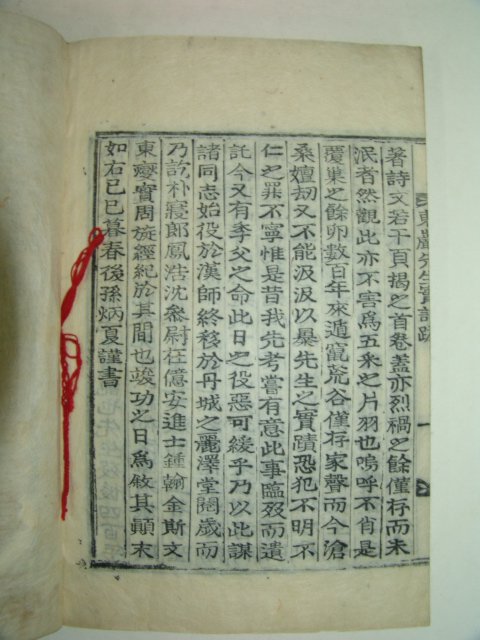 東巖先生實記跋
著詩文若干頁揭之首卷蓋亦烈禍之餘僅存而未
泯者然觀此亦不害爲五采之片羽也嗚呼不肖是
覆巢之餘卵數百年來遁竄荒谷僅存家聲而今滄
桑嬗劫又不能汲汲以暴先生之實蹟恐犯不明不
仁之罪不寧惟是昔我先考嘗有意此事臨歿而遺
託今又有季父之命此日之役惡可緩乎乃以此謀
諸同志始役於漢師終移於丹城之麗澤堂閱歲而
乃訖朴寢郎鳳浩沈參尉在億安進士鍾翰金斯文
東燮實周旋經紀於其間也竣功之日爲敘其顚末
如右己巳暮春後孫炳夏謹書